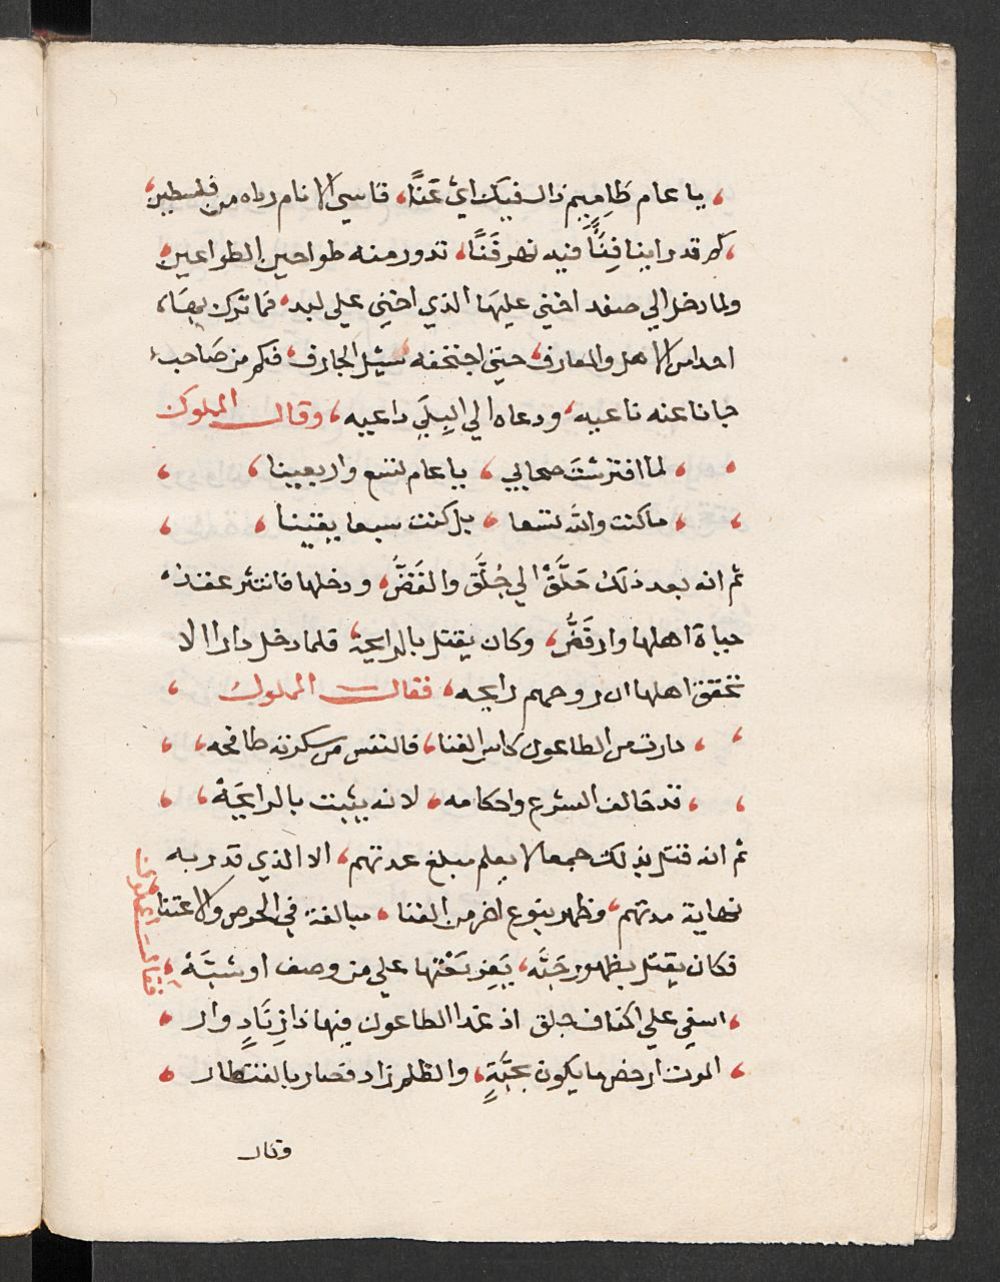 ، يا عام طَاعِينَهم زال فيك اي عَنًّا، قاسي الانام رداه من فلسطين،
، كم قد راينا فِنًّا فيه نهر قَنًا، تدور منه طواحين الطواعين،
ولما دخل الي صفد اخني عليهَا الذي اخني علي لبد، فما ترك بهَا،
احدا من الاهل والمعارف، حتى اجتحفه سَيل الجارف، فكم من صَاحب
جانا عنه ناعيه، ودعاه الي البِلَي داعيه، وقال المملوك
، ، لما افترشتَ صحابي، يا عام تسع واربعينا، ،
، ، ما كنت والله تسعا، بل كنت سبعا يقينا، ،
ثم انه بعد ذلك حَلَّقْ الي جُلَّق وانقَضَّ، ودخلها فانتثر عقد،
حياة اهلها وارفَضَّ، وكان يقتل بالرايحة، فلما دخل دارا الا
تحقق اهلها ان روحهم رايحه، فقال المملوك،
، ، دارت من الطاعون كاس الفنا، فالنفس من سكرته طافحه، ،
، ، قد خالف الشرع واحكامه، لانه يثبت بالرايحَة، ،
ثم انه قتل بذلك جمعا لا يعلم مبلغ عدتهم، الا الذي قدر به
نهاية مدتهم، وظهر بنوع اخر من الفنا، مبالغة في الحرص والاعتنا
فكان يقتل بظهور حَبَّه، يَعِز نَعْتها علي من وصف او شبَّهْ،
فقال المملوك
، اسفي علي اكناف جلق اذ غدا الطاعون فيها ذا زِنَادٍ وار،
، الموت ارخص ما يكون بحَبَّةٍ، والظلم زاد فصار بالقنطار،
وقال